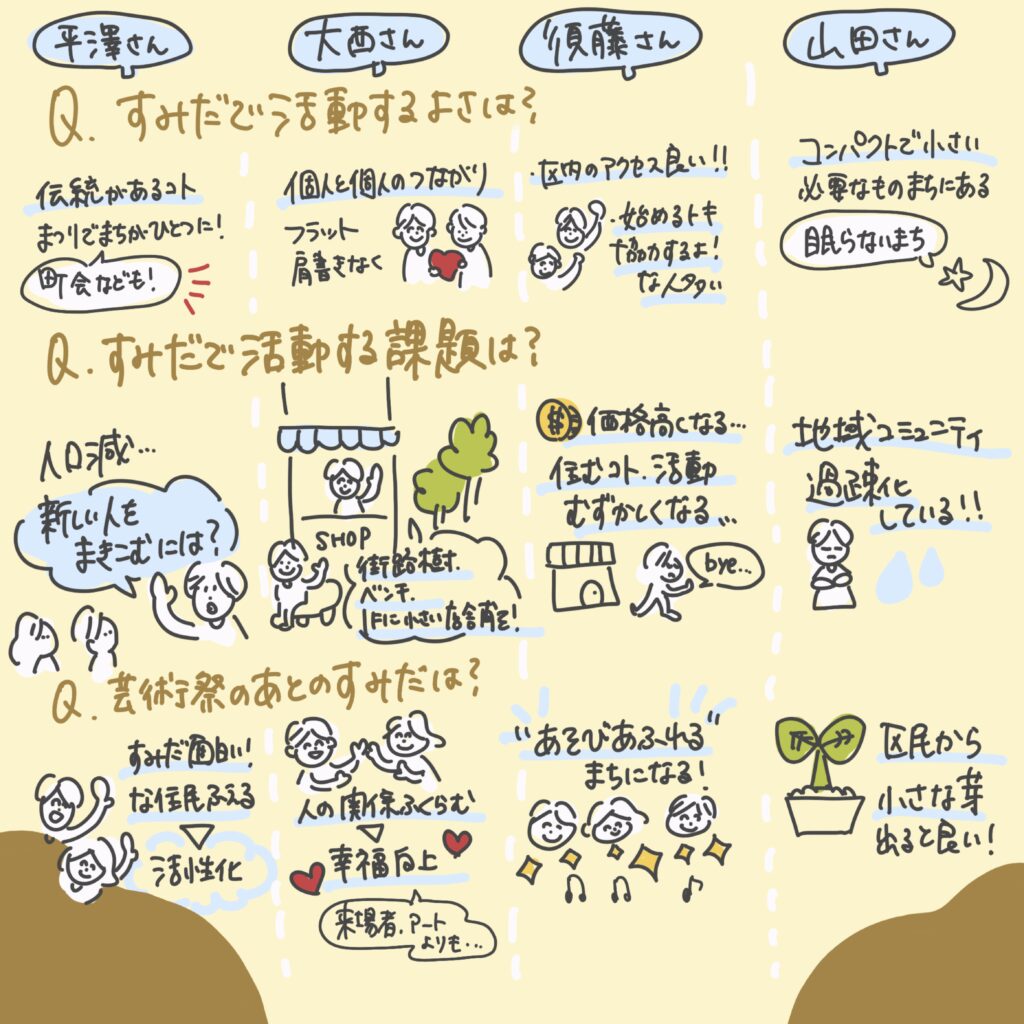 平澤さん
大西さん
須藤さん
山田さん
Q. すみだで活動するよさは?
伝統があるコト
まつりでまちがひとつに!
町会なども!
個人と個人のつながり
フラット
肩書きなく
・区内のアクセス良い!!
・始めるトキ
協力するよ!
な人多い
コンパクトで小さい
必要なものまちにある
眠らないまち
Q. すみだで活動する課題は?
人口減…
新しい人を
まきこむには?
SHOP
街路樹、
ベンチ、
下に小さい店舗を!
価格高くなる…
住むコト、活動
むずかしくなる…
bye…
地域コミュニティ
過疎化
している!!
Q. 芸術祭のあとのすみだは?
すみだ面白い!
な住民ふえる
活性化
人の関係ふくらむ
幸福向上
来場者、アート
よりも…
"あそびあふれる"
まちになる!
区民から
小さな芽
出ると良い!